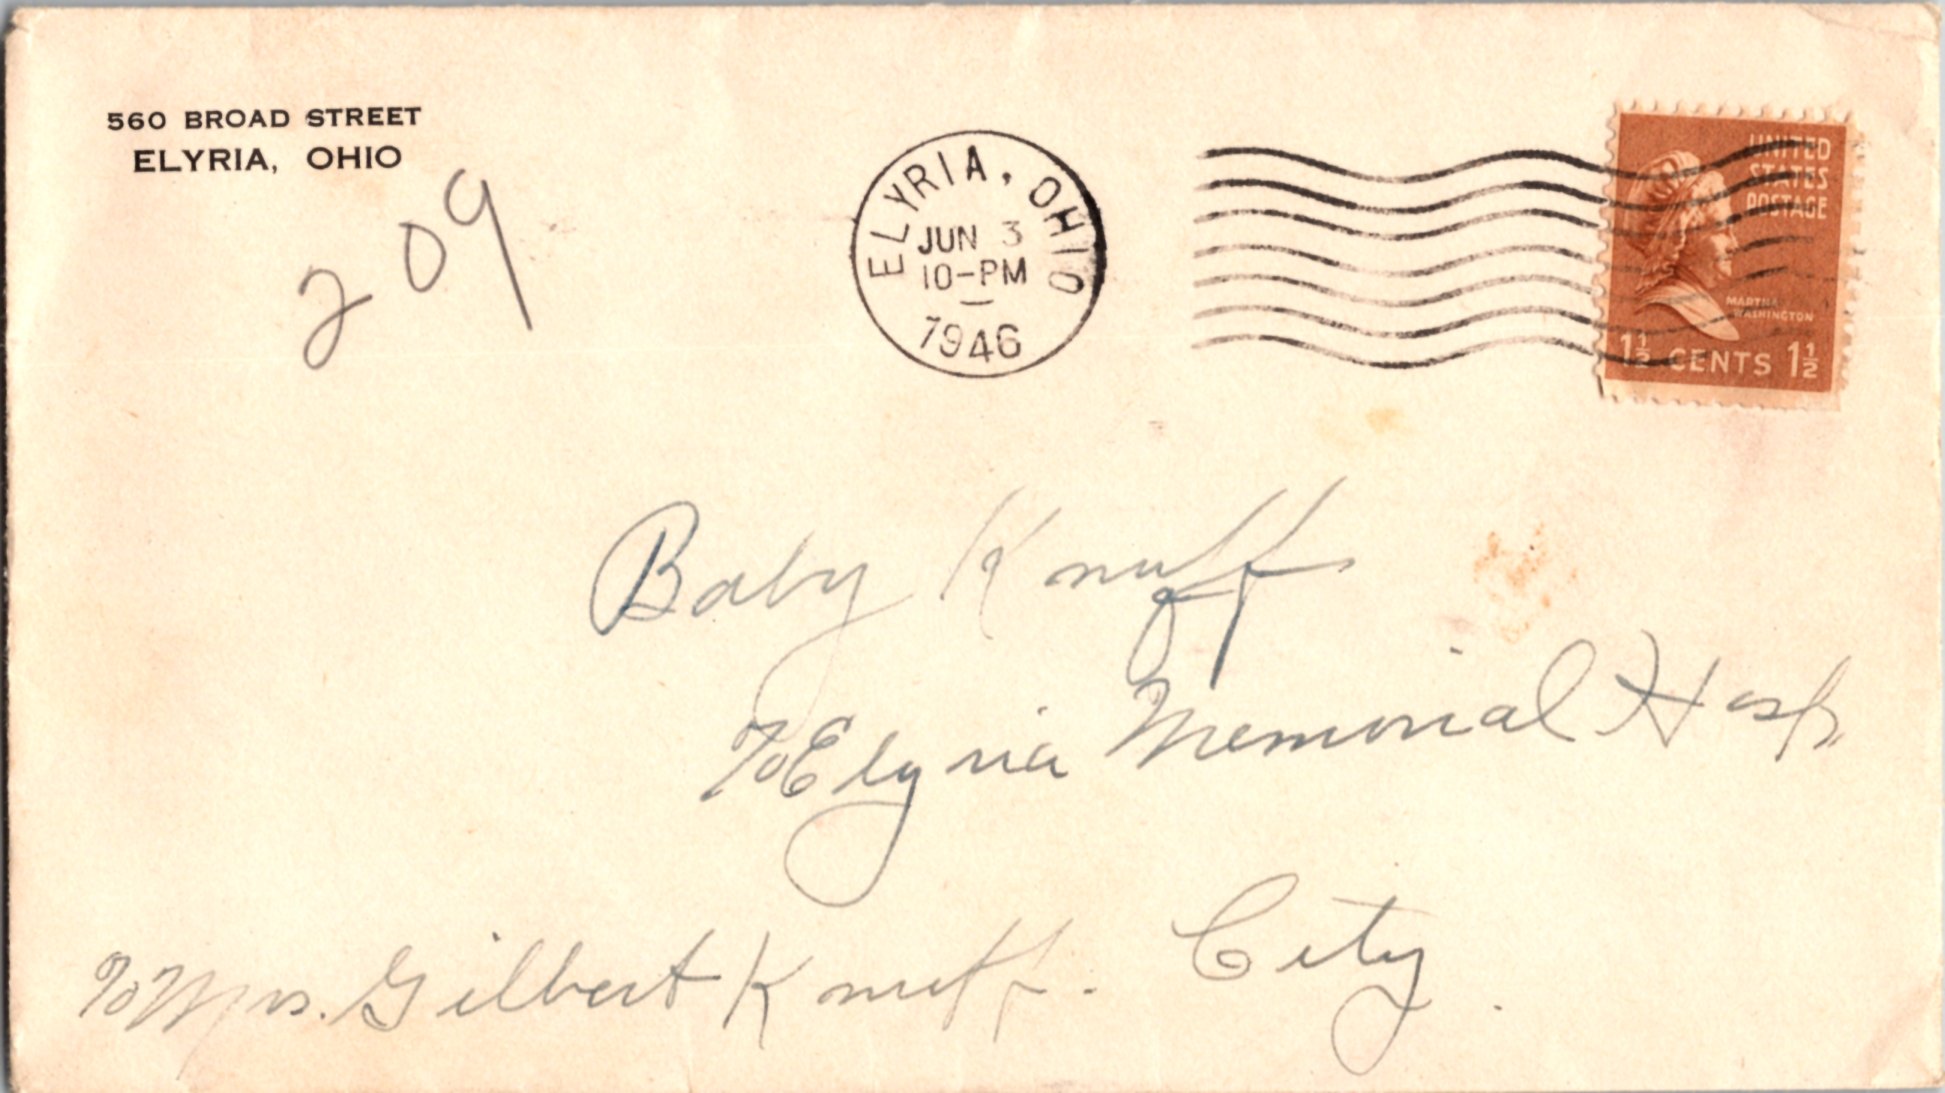 560 BROAD STREET
ELYRIA, OHIO
209
ELYRIA, OHIO
JUN 3
10-PM
1946
UNITED
STATES
POSTAGE
MARTHA
WASHINGTON
1½ CENTS 1½
Baby Knuff
% Elyria Memorial Hosp.
City.
% Mrs. Gilbert Knuff.